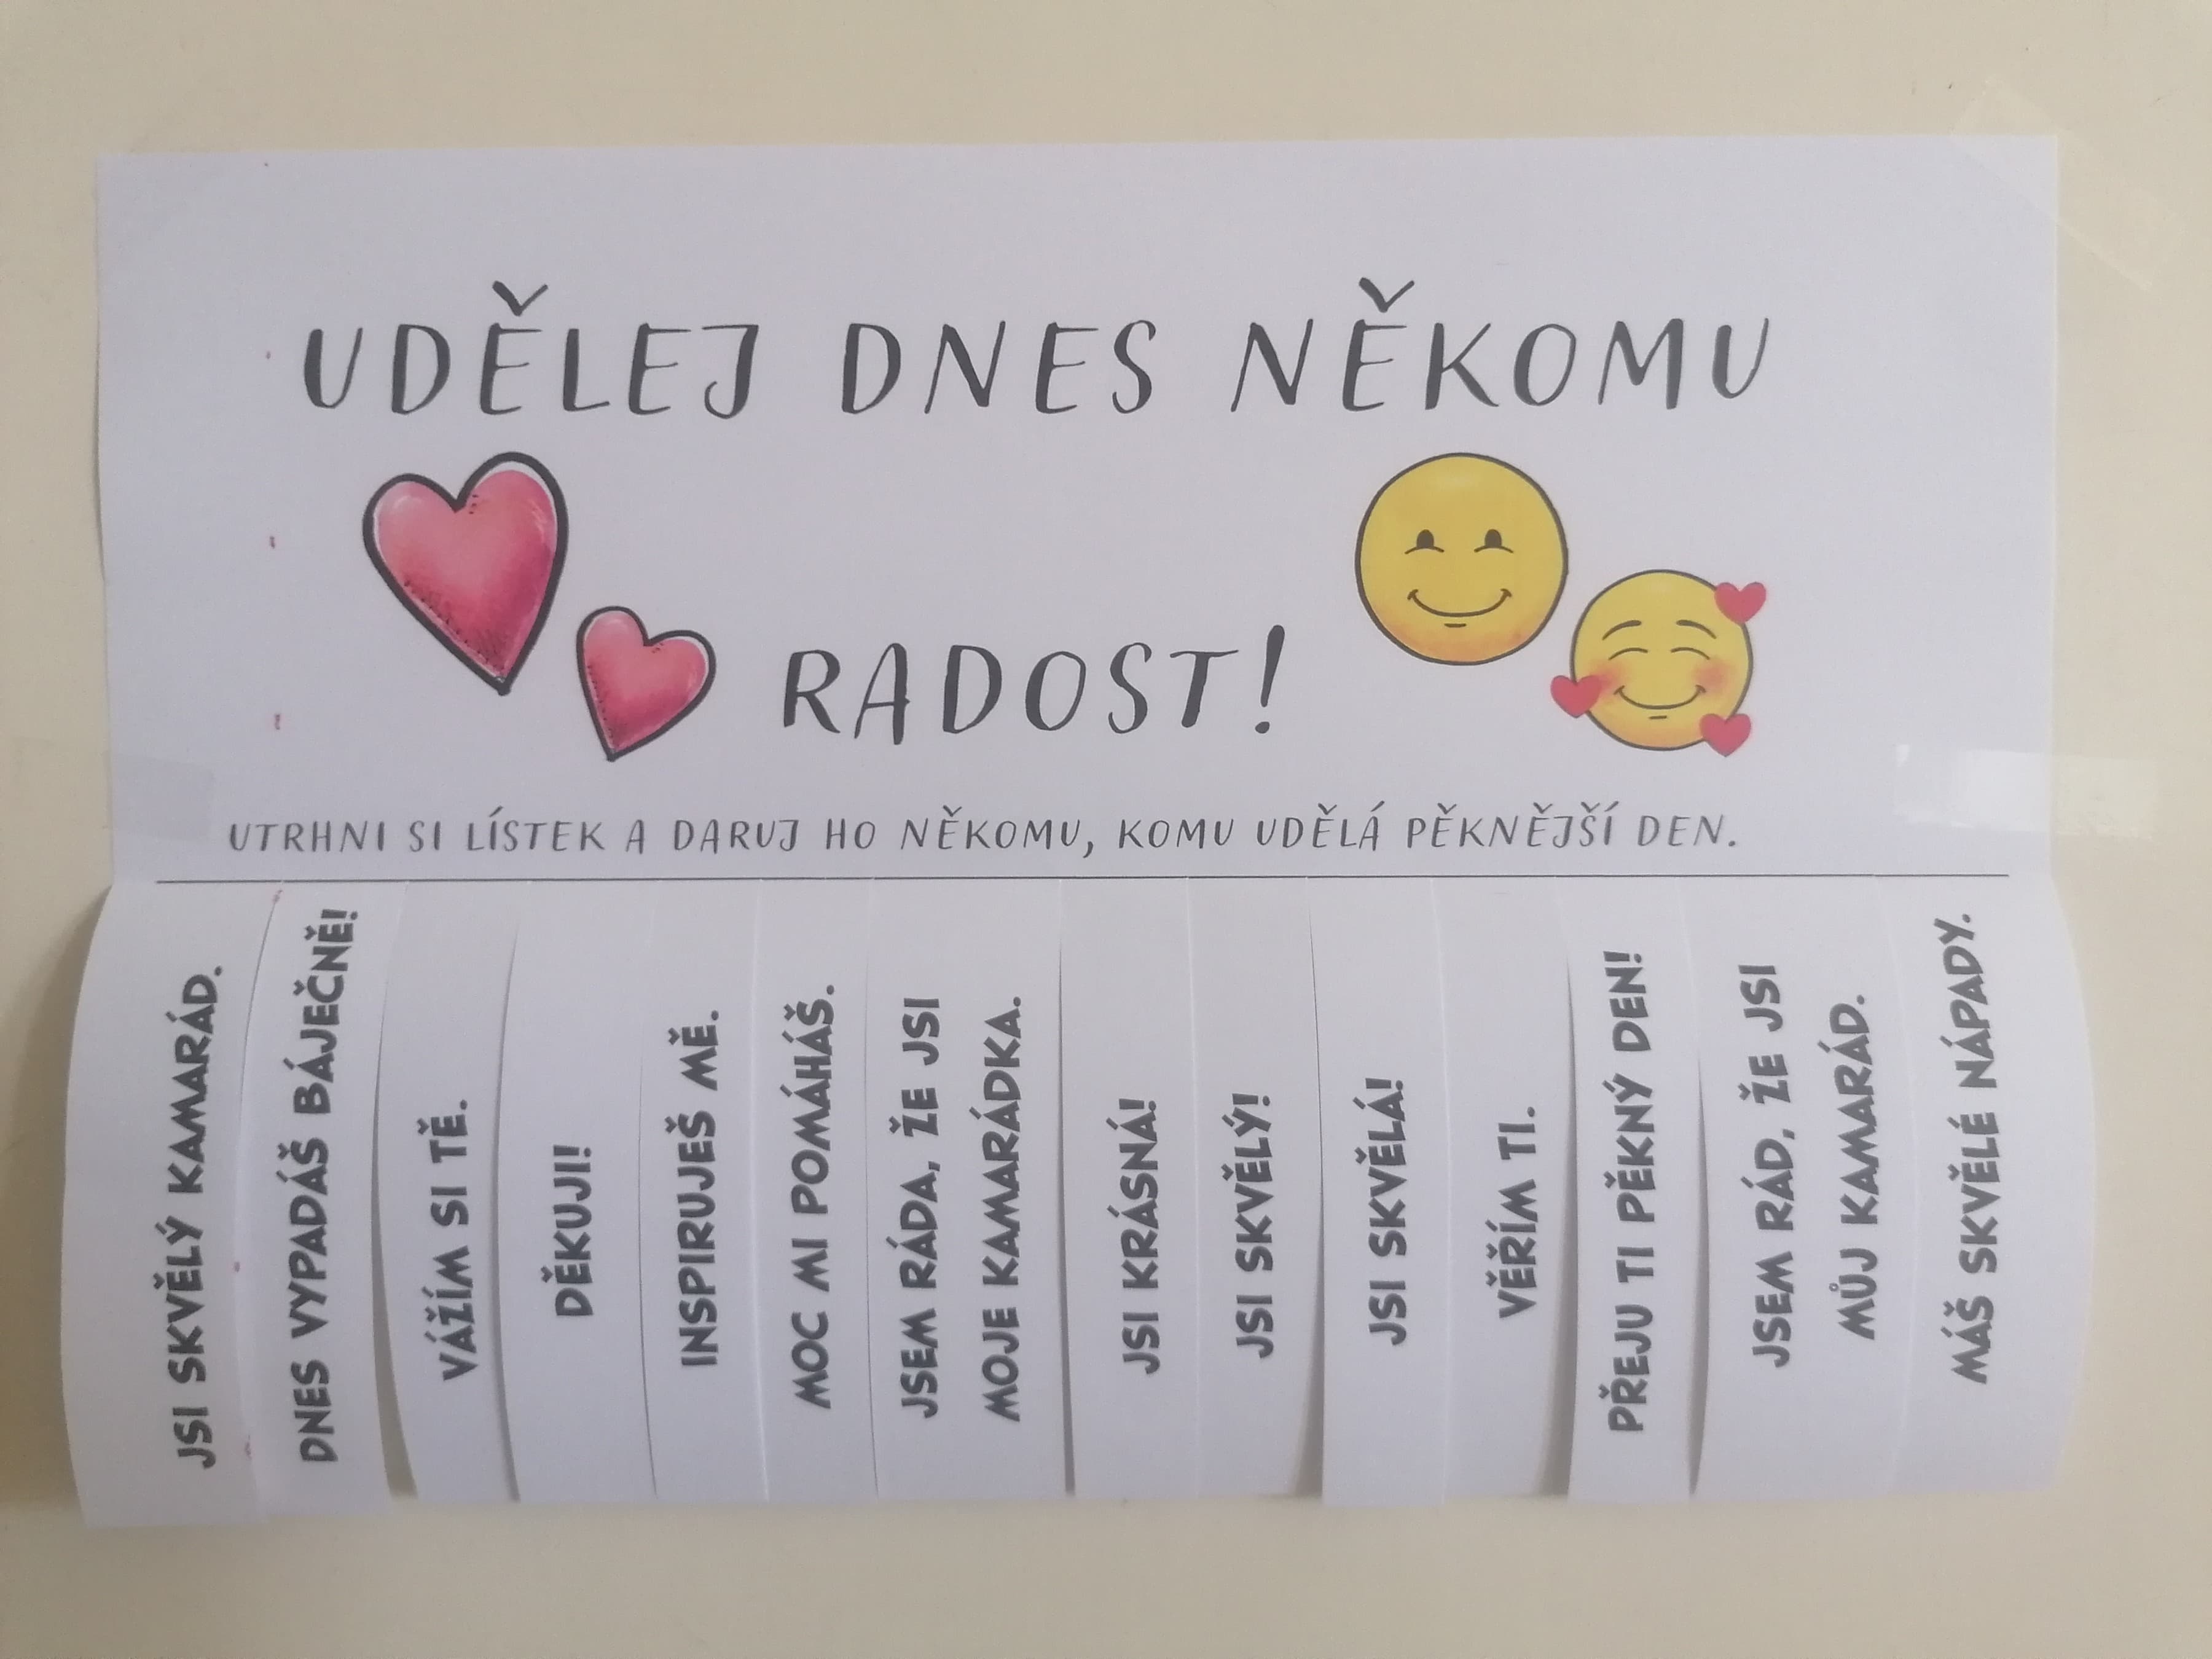 UDĚLEJ DNES NĚKOMU
RADOST!
UTRHNI SI LÍSTEK A DARUJ HO NĚKOMU, KOMU UDĚLÁ PĚKNĚJŠÍ DEN.
JSI SKVĚLÝ KAMARÁD.
DNES VYPADÁŠ BÁJEČNĚ!
VÁŽÍM SI TĚ.
DĚKUJI!
INSPIRUJEŠ MĚ.
MOC MI POMÁHÁŠ.
JSEM RÁDA, ŽE JSI
MOJE KAMARÁDKA.
JSI KRÁSNÁ!
JSI SKVĚLÝ!
JSI SKVĚLÁ!
VĚŘÍM TI.
PŘEJU TI PĚKNÝ DEN!
JSEM RÁD, ŽE JSI
MŮJ KAMARÁD.
MÁŠ SKVĚLÉ NÁPADY.